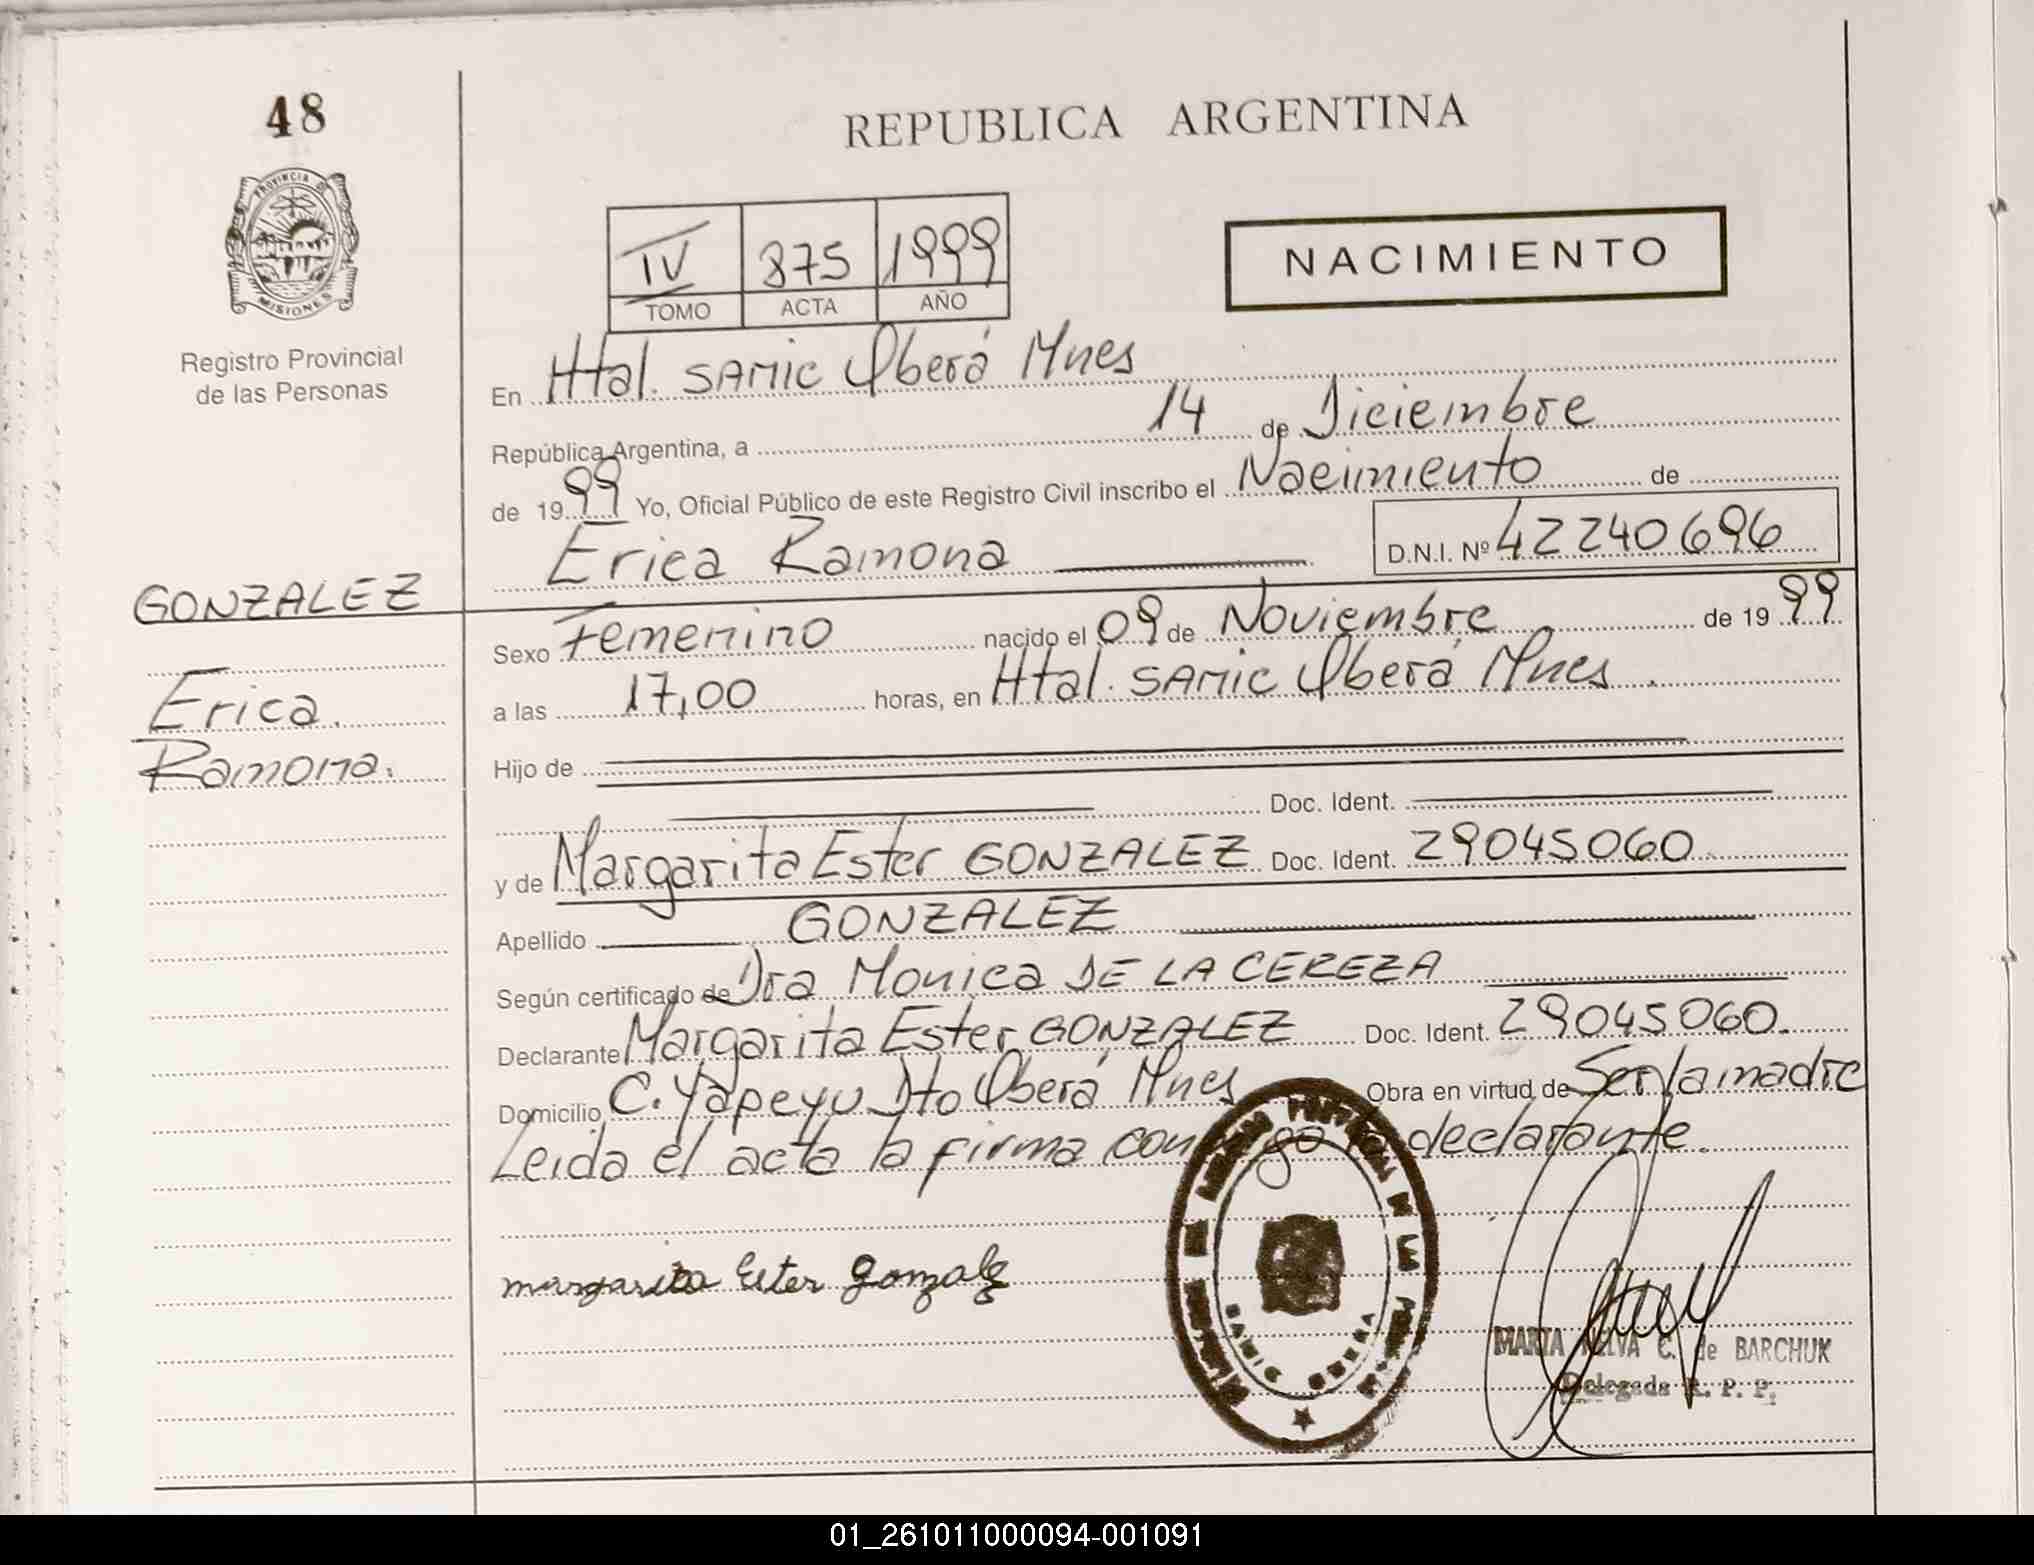 48
REPUBLICA ARGENTINA
PROVINCIA DE
MISIONES
Registro Provincial
de las Personas
IV 875 1999
TOMO ACTA AÑO
NACIMIENTO
En Htal. SAMIC Oberá Mnes
República Argentina, a 14 de Diciembre
de 1999 Yo, Oficial Público de este Registro Civil inscribo el Nacimiento de
Erica Ramona D.N.I. Nº 42240696
GONZALEZ
Erica
Ramona.
Sexo Femenino nacido el 09 de Noviembre de 1999
a las 17,00 horas, en Htal. SAMIC Oberá Mnes.
Hijo de
Doc. Ident.
y de Margarita Ester GONZALEZ Doc. Ident. 29045060
Apellido GONZALEZ
Según certificado de Dra Monica DE LA CEREZA
Declarante Margarita Ester GONZALEZ Doc. Ident. 29045060.
Domicilio C. Yapeyu Dto Oberá Mnes Obra en virtud de Ser la madre
Leida el acta la firma conmigo la declarante.
margarita Ester gonzalez
SAMIC OBERA
MARTA ELVA C. de BARCHUK
Delegada R. P. P.
01_261011000094-001091